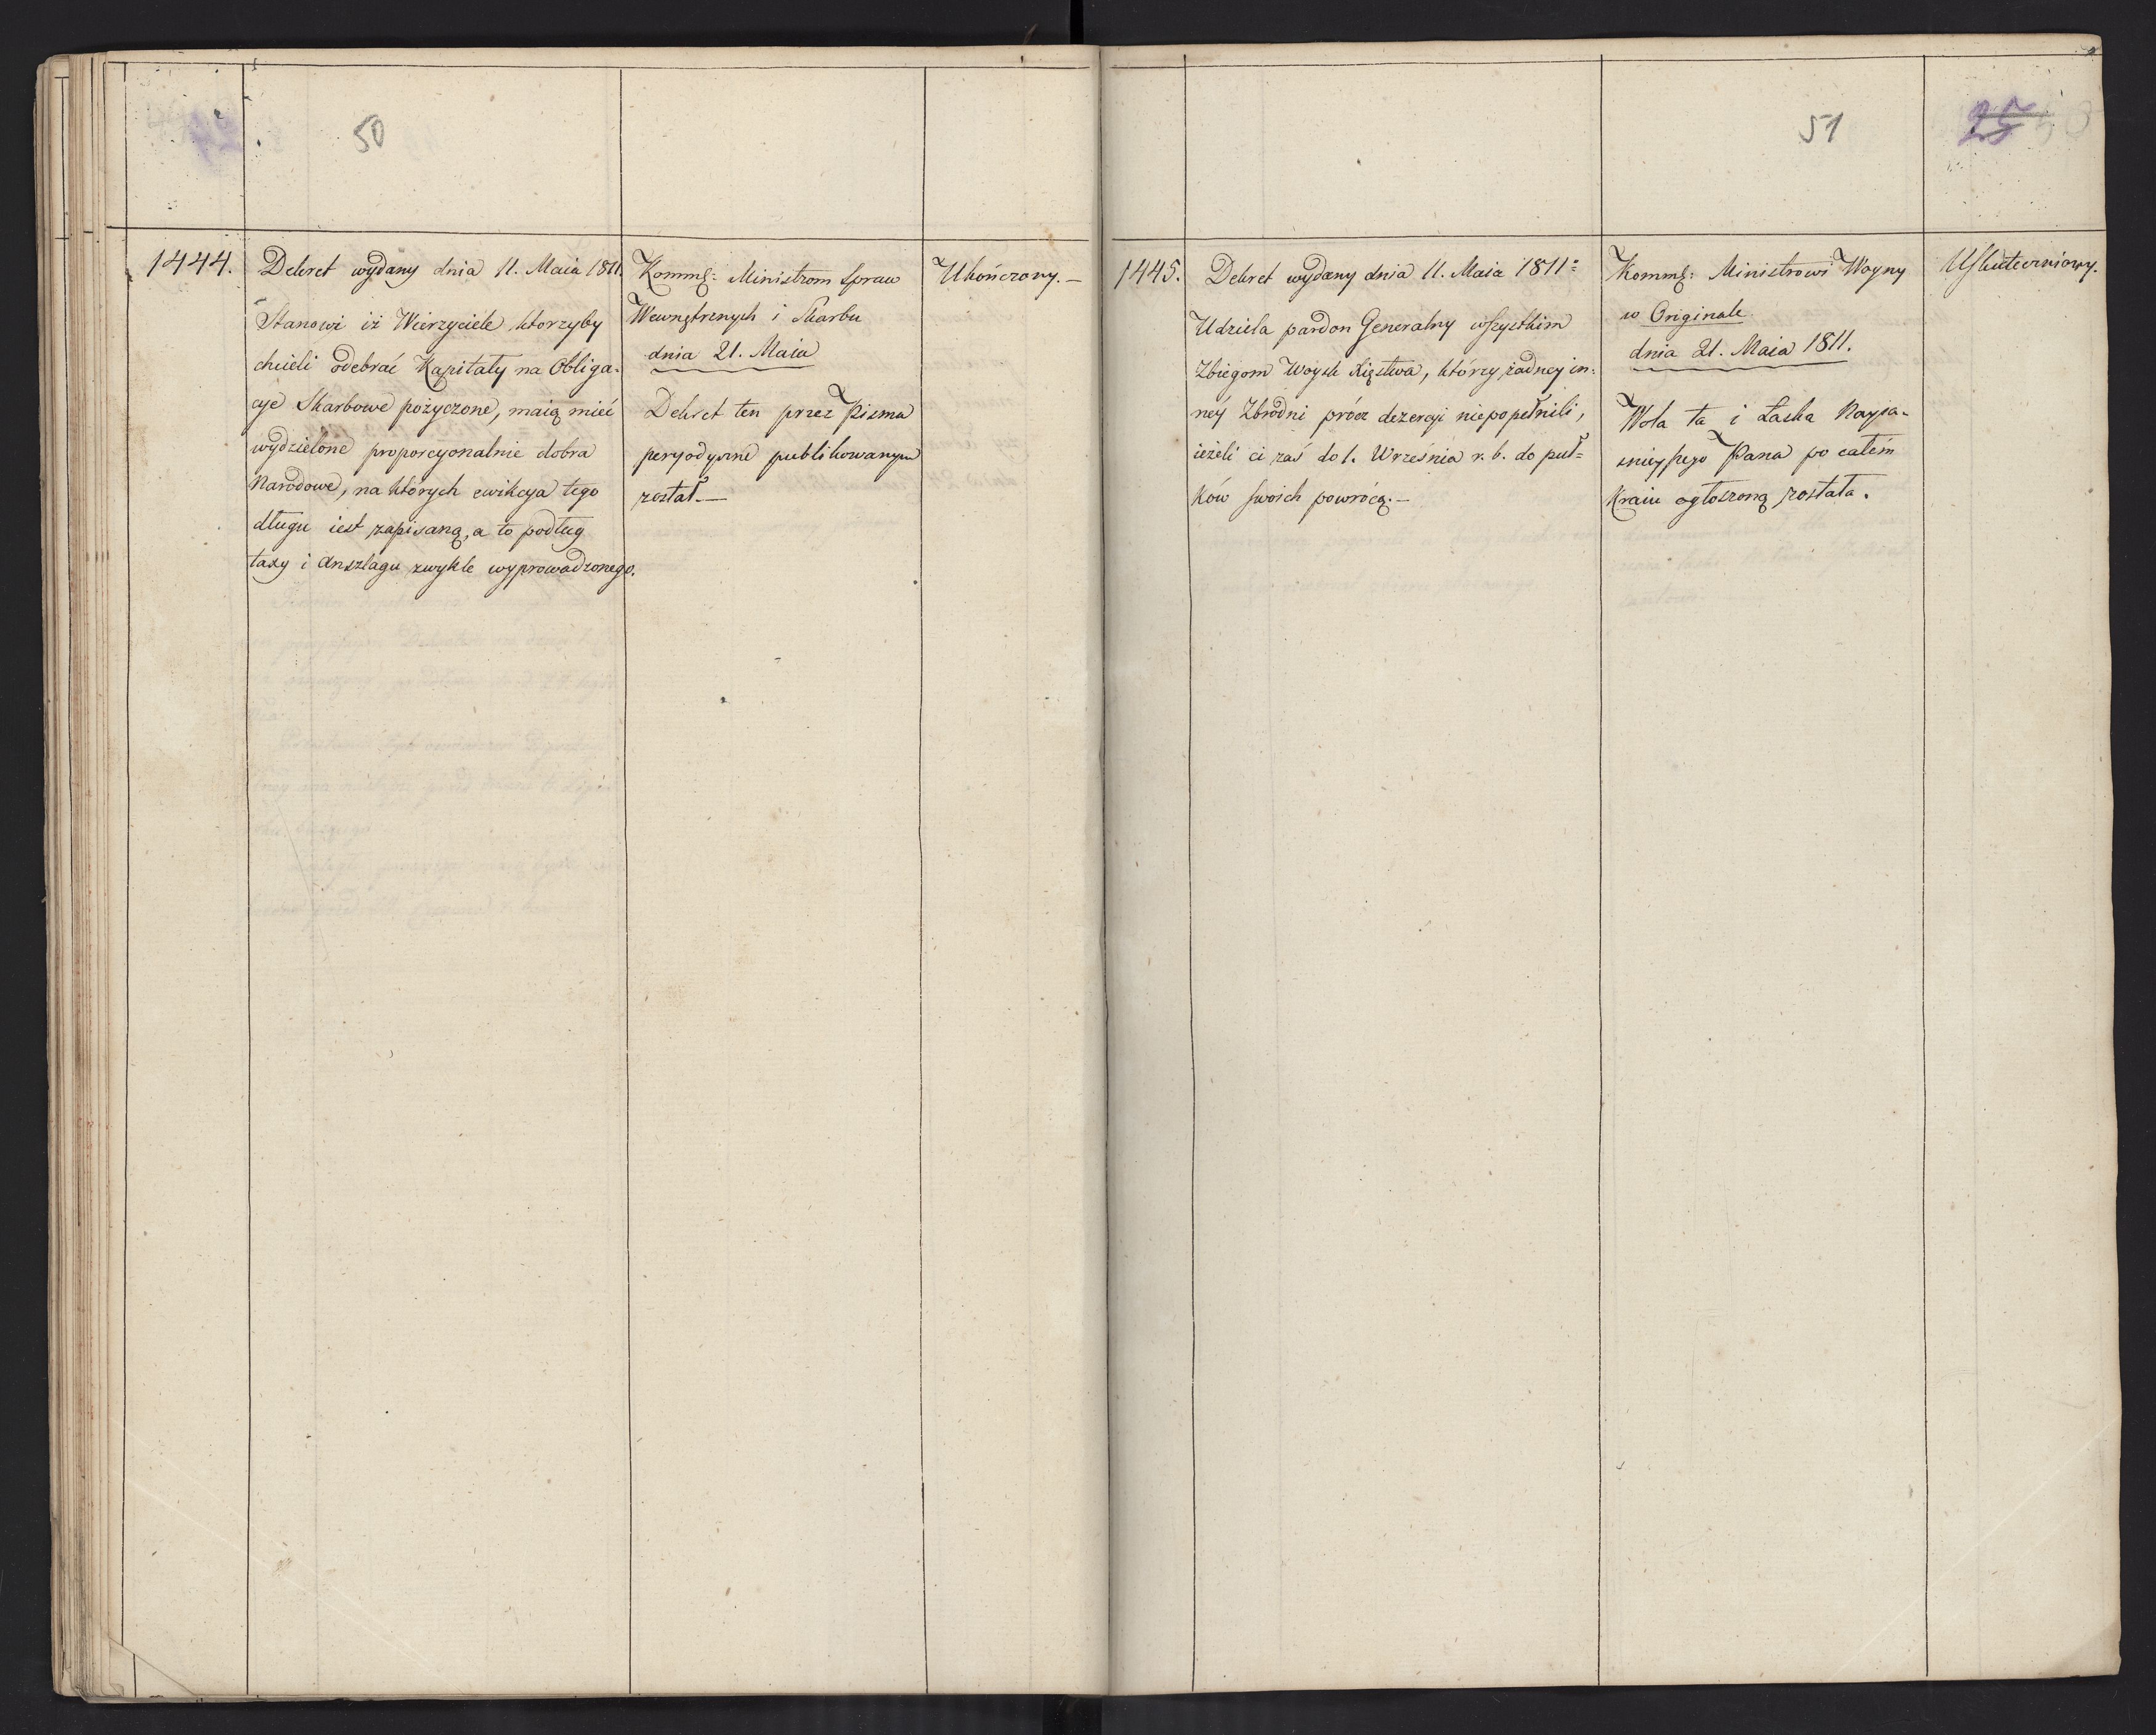 50
1444.
Dekret wydany dnia 11. Maia 1811.
Stanowi iż Wierzyciele, ktorzyby
chcieli odebrać Kapitały na Obliga-
cye Skarbowe pożyczone, maią mieć
wydzielone proporcyonalnie dobra
Narodowe, na których ewikcya tego
długu iest zapisaną, a to podług
taxy i anszlagu zwykle wyprowadzonego.
Kommę: Ministrom Spraw
Wewnętrznych i Skarbu
dnia 21. Maia
Dekret ten przez Pisma
peryodyczne publikowanym
został.—
Ukończony.—
51
25
1445.
Dekret wydany dnia 11. Maia 1811:
Udziela pardon Generalny wszystkim
Zbiegom Woysk Xięstwa, którzy żadney in:
ney Zbrodni prócz dezercyi niepopełnili,
ieżeli ci zaś do 1. Września r. b. do puł=
ków swoich powrócą.—
Kommę: Ministrowi Woyny
w Originale
dnia 21. Maia 1811.
Wola ta i Łaska Nayia-
śnieyszego Pana po całém
Kraiu ogłoszoną została.
Uskuteczniony.